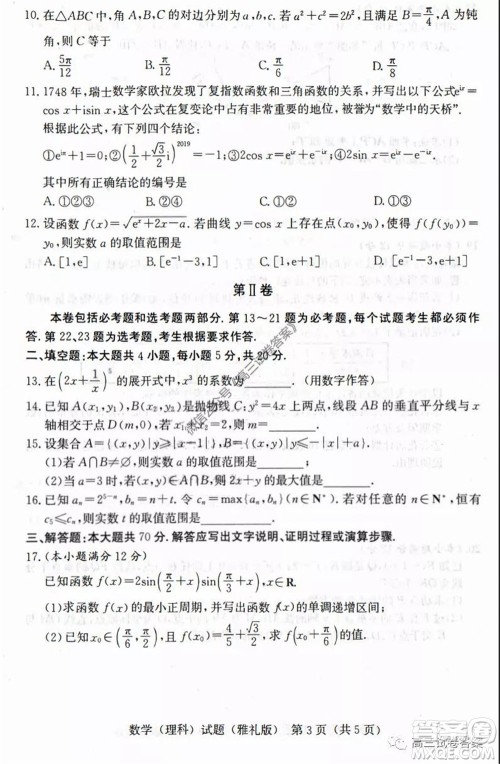 10. 在△ABC 中，角 A，B，C 的对边分别为 a，b，c. 若 a²＋c²＝2b²，且满足 B＝π/4，A 为钝
角，则 C 等于
A. 5π/12 B. π/12 C. π/6 D. π/8
11. 1748 年，瑞士数学家欧拉发现了复指数函数和三角函数的关系，并写出以下公式e^{ix}＝
cos x＋isin x，这个公式在复变论中占有非常重要的地位，被誉为“数学中的天桥”.
根据此公式，有下列四个结论：
①e^{iπ}＋1＝0；②(1/2＋√3/2 i)^{2019}＝－1；③2cos x＝e^{ix}＋e^{－ix}；④2sin x＝e^{ix}－e^{－ix}.
其中所有正确结论的编号是
A. ①②③ B. ②④ C. ①② D. ①③
12. 设函数 f(x)＝√(e^x＋2x－a). 若曲线 y＝cos x 上存在点(x₀，y₀)，使得 f(f(y₀))
＝y₀，则实数 a 的取值范围是
A. [1，e] B. [e^{－1}－3，1] C. [1，e＋1] D. [e^{－1}－3，e＋1]
第Ⅱ卷
本卷包括必考题和选考题两部分. 第 13～21 题为必考题，每个试题考生都必须作
答. 第 22、23 题为选考题，考生根据要求作答.
二、填空题：本大题共 4 小题，每小题 5 分，共 20 分.
13. 在(2x＋1/x)^5 的展开式中，x³ 的系数为________. (用数字作答)
14. 已知 A(x₁，y₁)，B(x₂，y₂)是抛物线 C：y²＝4x 上两点，线段 AB 的垂直平分线与 x
轴相交于点 D(m，0)，若 x₁＋x₂＝2，则 m＝________.
15. 设集合 A＝{(x，y)|y≥|x－1|}，B＝{(x，y)|y≤－|x|＋a}.
(1)若 A∩B≠∅，则实数 a 的取值范围是________；
(2)当 a＝3 时，若(x，y)∈A∩B，则 x＋2y 的取值范围是________.
16. 已知 aₙ＝2^{5－n}，bₙ＝n＋t. 令 cₙ＝max{aₙ，bₙ}(n∈N*)，若对任意的 n∈N*，恒有
c₅≤cₙ，则实数 t 的取值范围是________.
三、解答题：本大题共 70 分. 解答应写出文字说明、证明过程或演算步骤.
17. (本小题满分 12 分)
已知函数 f(x)＝2sin(π/2＋x)sin(π/3＋x)，x∈R.
(1)求函数 f(x)的最小正周期，并写出函数的单调递增区间；
(2)已知 x₀∈(π/6，π/2)，且 f(x₀)＝4/5＋√3/2，求 f(x₀＋π/6)的值.
数学（理科）试题（雅礼版） 第 3 页（共 5 页）
高三试卷答案